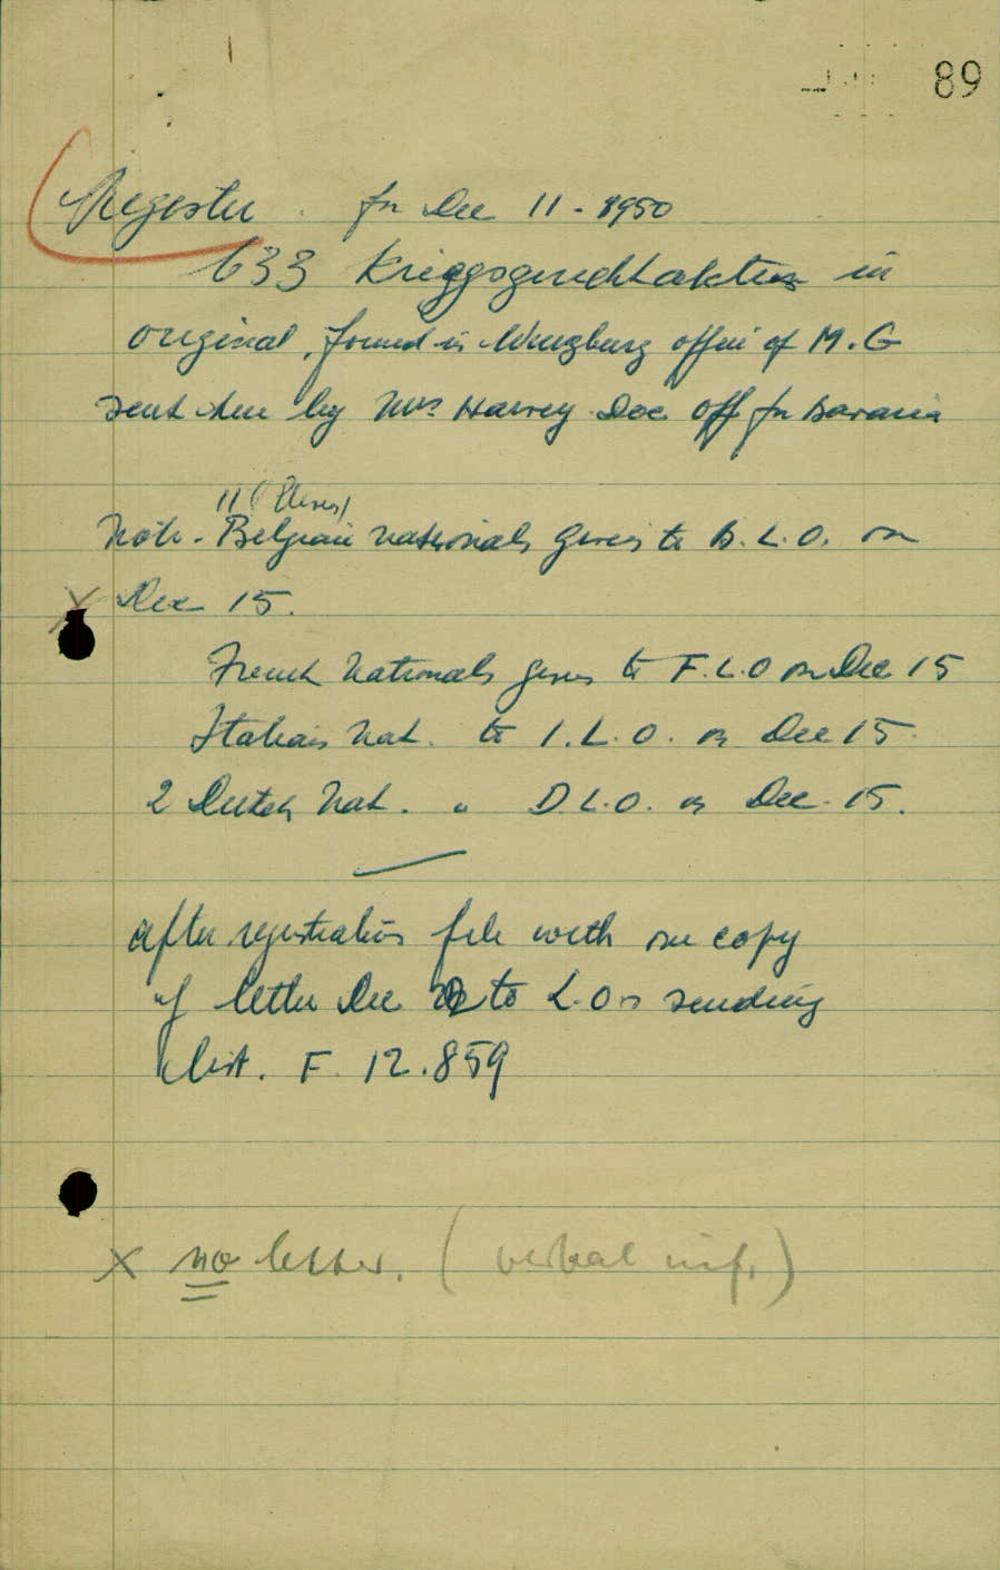 89
Register for Dec 11 - 1950
633 Kriegsgerichtakten in
original, found in Wurzburg office of M.G
sent here by Mrs Harvey Doc off for Bavaria
11
Note - Belgian nationals given to B.L.O. on
X Dec 15.
French Nationals given to F.L.O on Dec 15
Italian Nat. to I.L.O. on Dec 15.
2 Dutch Nat. " D.L.O. on Dec. 15.
after registration file with one copy
of letter Dec to L.Os sending
list. F. 12.859
X no letter. (verbal inf.)